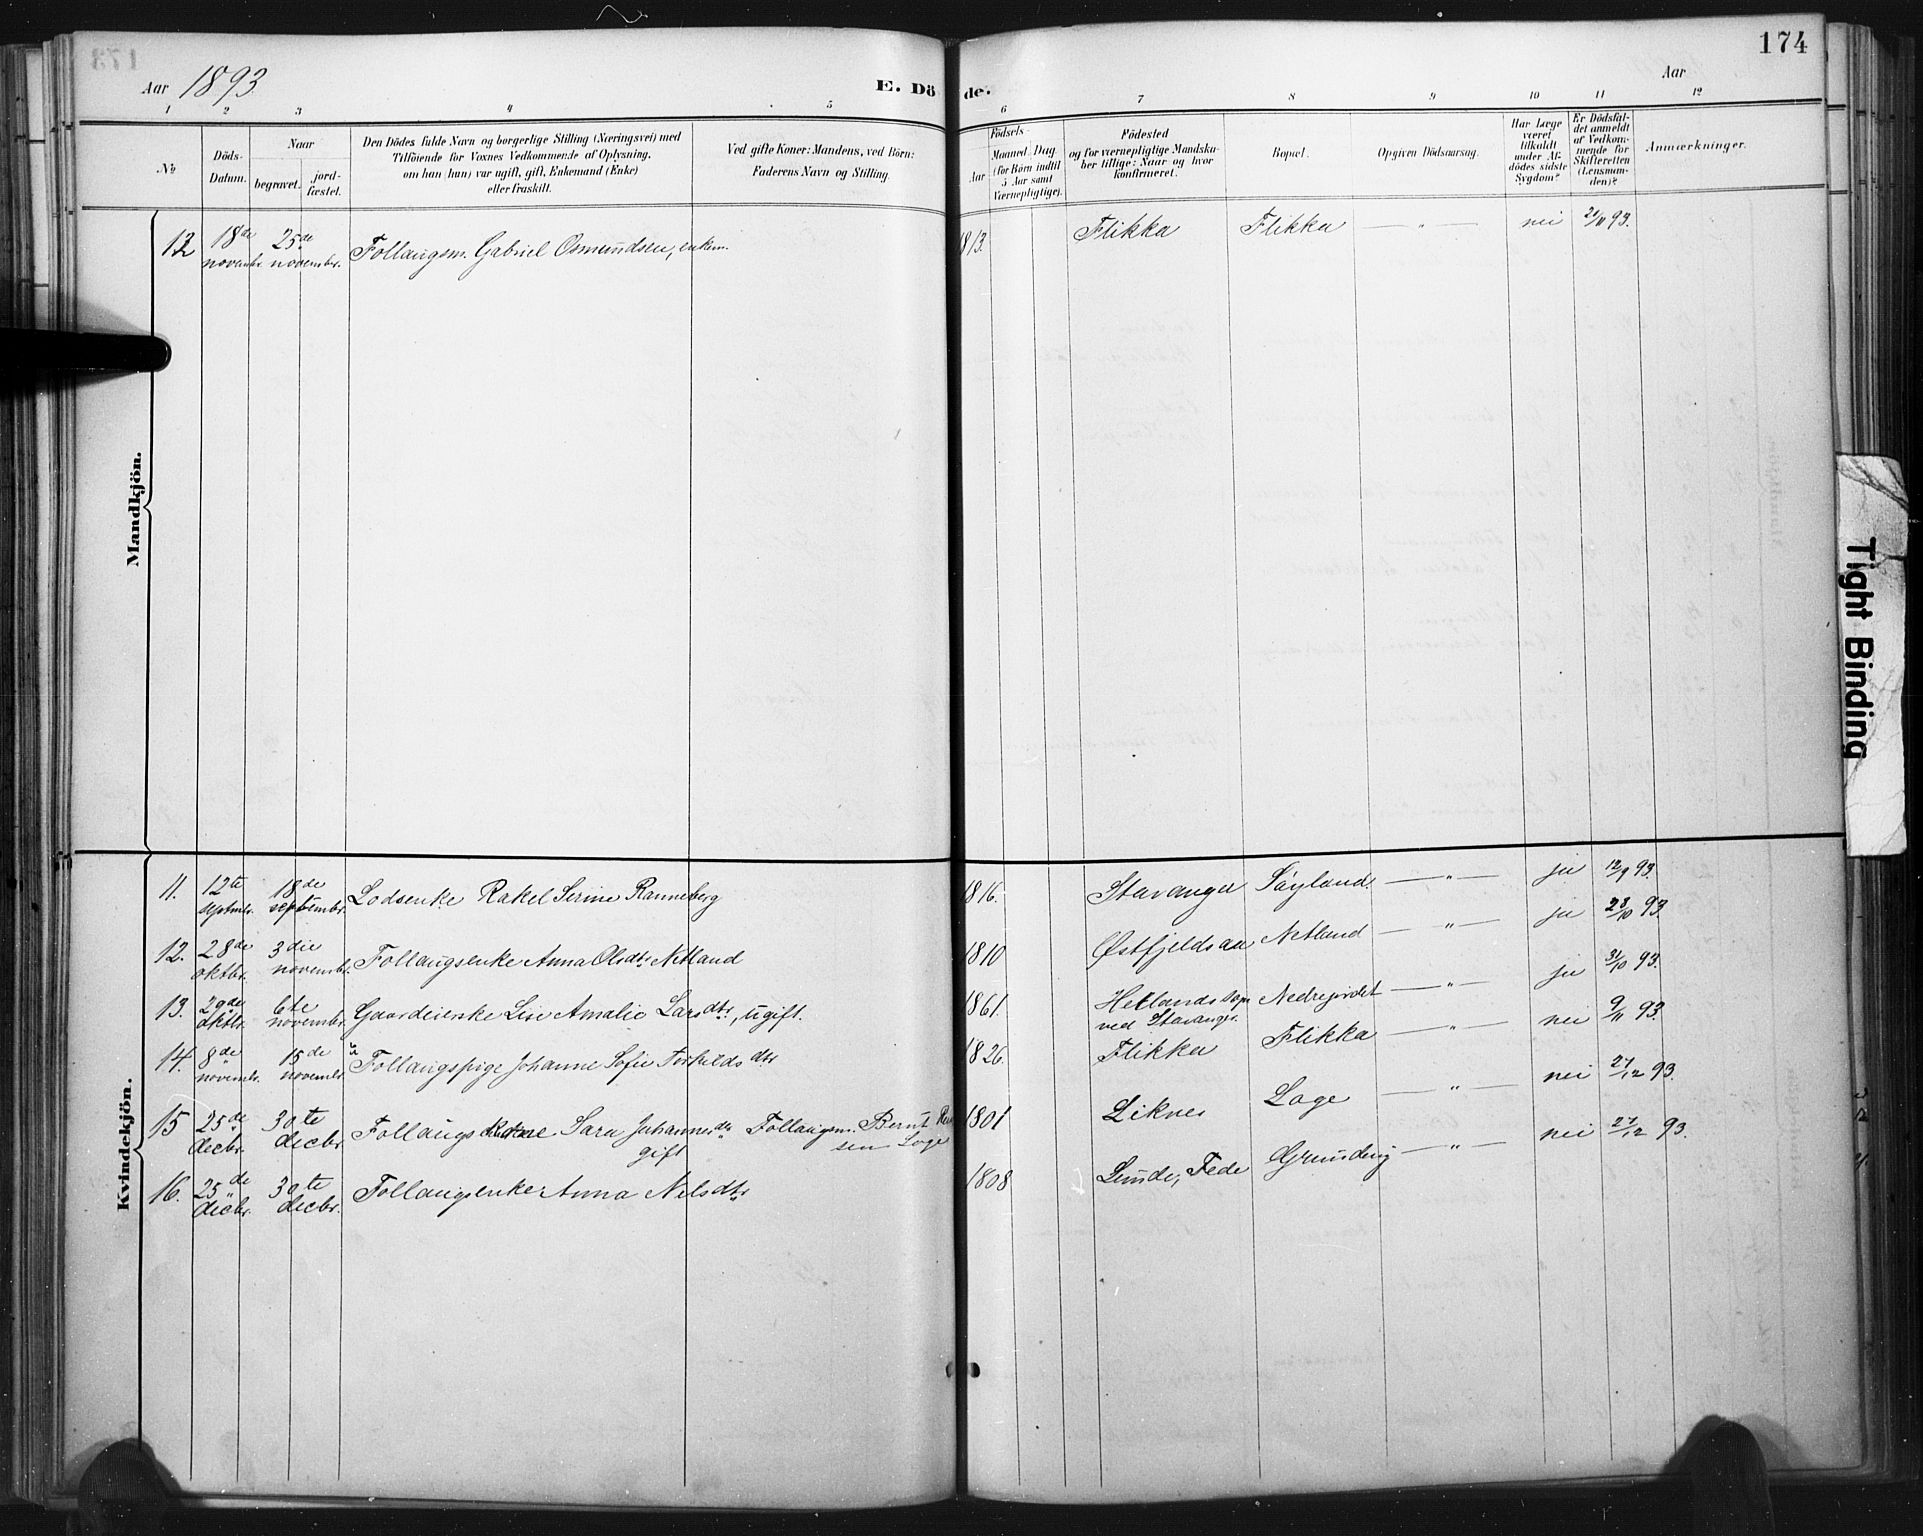 173
174
Aar 1893.
E. Döde.
Aar
1 2 3 4 5 6 7 8 9 10 11 12
No
Döds-Datum.
Naar
begravet.
jord-fæstet.
Den Dödes fulde Navn og borgerlige Stilling (Næringsvei) med
Tilföiende for Voxnes Vedkommende af Oplysning,
om han (hun) var ugift, gift, Enkemand (Enke)
eller fraskilt.
Ved gifte Koner: Mandens, ved Börn:
Faderens Navn og Stilling.
Födsels-
Aar
Maaned. Dag.
(for Börn indtil
5 Aar samt
Værnepligtige).
Födested
og for værnepligtige Mandska-
ber tillige: Naar og hvor
konfirmeret.
Bopæl.
Opgiven Dödsaarsag.
Har Læge
været
tilkaldt
under Af-
dödes sidste
Sygdom?
Er Dödsfal-
det anmeldt
af Vedkom-
mende for
Skifteretten
(Lensman-
den)?
Anmærkninger.
Mandkjön.
12 18de novembr. 25de novembr. Follaugsm. Gabriel Osmundsen, enkem. 1813. Flikka Flikka — " — nei 21/11 93.
Kvindekjön.
11. 12te septmbr. 18de septembr. Lodsenke Rakel Serine Ranneberg 1816. Stavanger Söyland. — " — ja 12/9 93.
12. 28de oktbr. 3die novembr. Follaugsenke Anna Olsdtr Netland 1810 Østfjeldsaa Netland — " — ja 28/10 93.
13. 29de oktbr. 6te novembr. Gaardeierske Lise Amalie Larsdtr, ugift. 1861. Hetlands sogn ved Stavanger. — " — ja 31/10 93.
14. 8de novembr. 15de novembr. Follaugspige Johanne Sofie Torkildsdtr 1826. Flikka Flikka — " — nei 9/11 93.
15 25de decbr. 30te decbr. Follaugskone Sara Johannesdtr gift Follaugsm. Bernt sen Loge 1801 Liknes Loge — " — nei 27/12 93.
16. 25de decbr. 30te decbr. Follaugsenke Anna Nelsdtr 1808 Lunde, Fede — " — nei 27/12 93.
Tight Binding